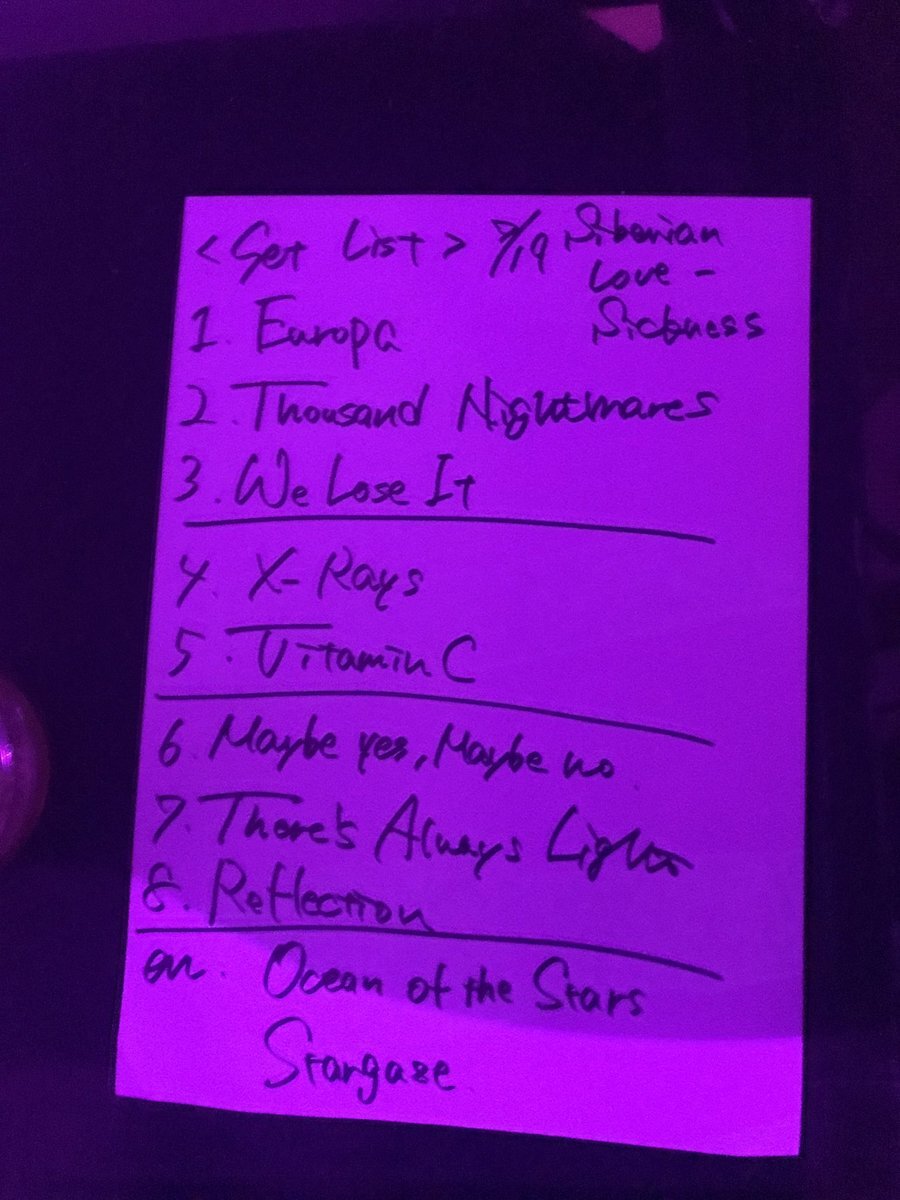 <Set List> 9/19 Siberian
Love-
Sickness
1. Europa
2. Thousand Nightmares
3. We Lose It
4. X-Rays
5. Vitamin C
6. Maybe yes, Maybe no
7. There's Always Light
8. Reflection
en. Ocean of the Stars
Stargaze